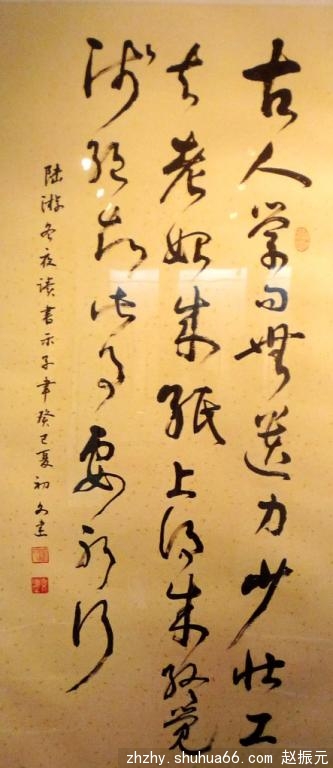 古人学问無遗力少壮工
夫老始成纸上得来终觉
浅绝知此事要躬行
陆游冬夜读書示子聿癸巳夏初
zhzhy.shuhua66.com 赵振元